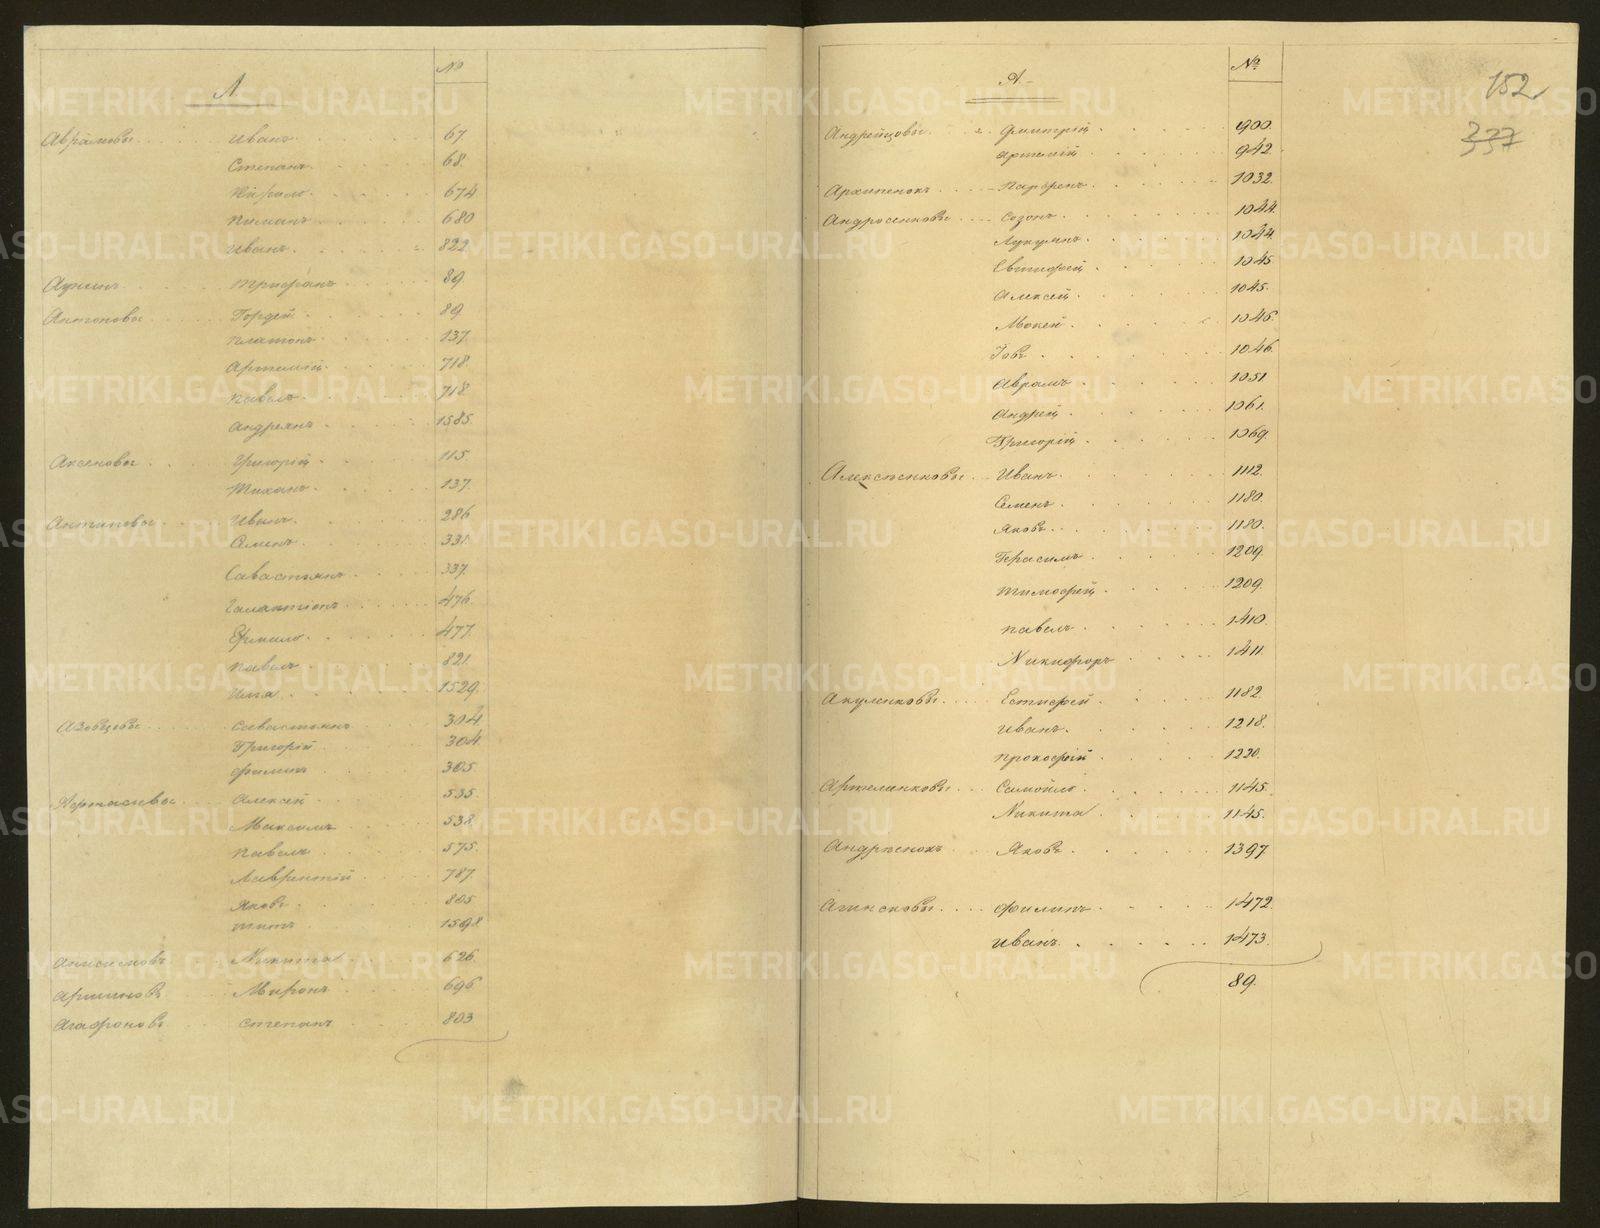 А. №
Аврамовы Иванъ 67
Степанъ 68
674
Пиманъ 680
Иванъ 822
Трифанъ 89
Антоновы Гордей 89
Платонъ 137
Артемій 718
Павелъ 718
Андреянъ 1585
Аксеновы Григорій 115
Тиханъ 137
Антиповы Иванъ 286
Семенъ 331
Савастьянъ 337
Галактіонъ 476
Ермило 477
Павелъ 821
Илья 1529
Азовцовы Савастьянъ 304
Григорій 304
Филипъ 305
Алексей 535
Максимъ 538
Павелъ 575
Лаврентій 787
Яковъ 805
Титъ 1598
Анисимовъ Никита 626
Аршиновъ Миронъ 696
Агафоновъ Степанъ 803
А. №
152
337
Андрейцовы Дмитрій 900
Артемій 942
Архипенокъ Парфенъ 1032
Андросенковы Созонъ 1044
Лукьянъ 1044
Евтифей 1045
Алексей 1045
Мокей 1046
Іовъ 1046
Аврамъ 1051
Андрей 1061
Григорій 1069
Алексѣенковы Иванъ 1112
Семенъ 1180
Яковъ 1180
Герасимъ 1209
Тимофей 1209
Павелъ 1410
Никифоръ 1411
Акуленковы Естифей 1182
Иванъ 1218
Прокофій 1220
Артеменковы Самойло 1145
Никита 1145
Андрѣенокъ Яковъ 1397
Агинсковы Филипъ 1472
Иванъ 1473
89
METRIKI.GASO-URAL.RU